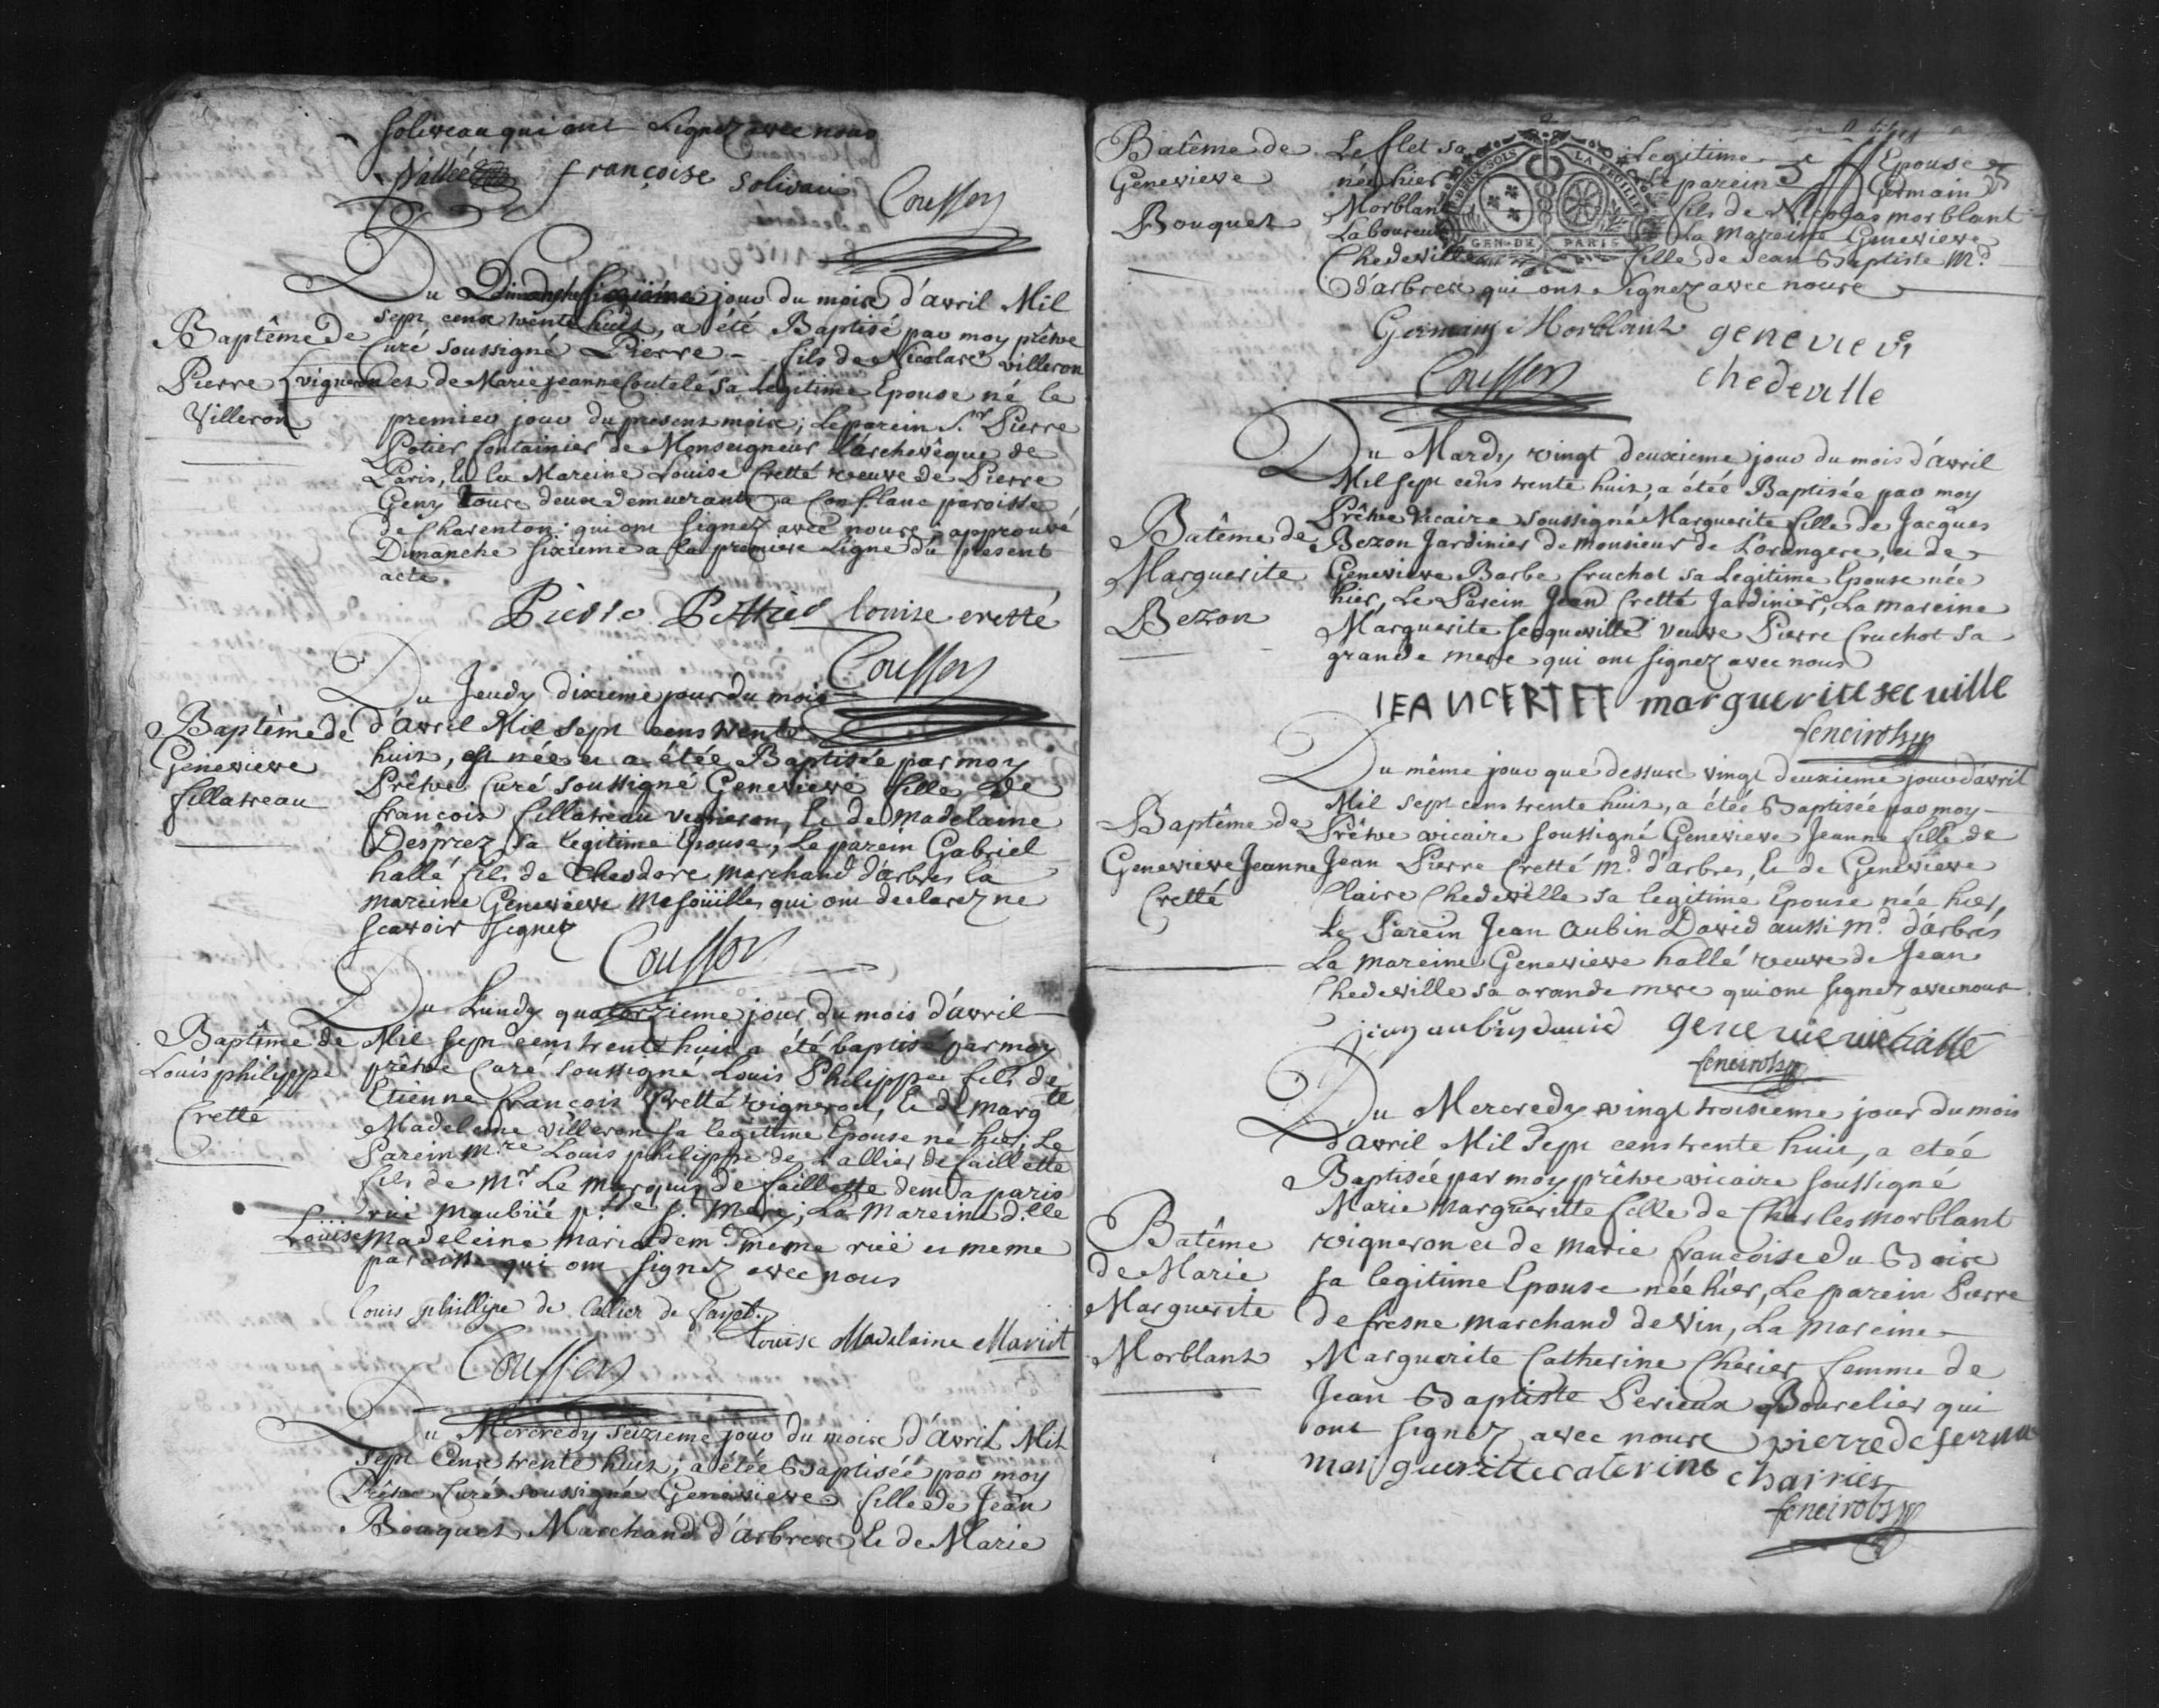 Soliveau qui ont signez avec nous
Vallée françoise solivau Cousson
Du Dimanche sixiéme jour du mois d'avril Mil
sept cens trente huit, a été Baptisé par moy prêtre
Baptême de
Pierre
Villeron
Curé soussigné Pierre - fils de Nicolas villeron
vigneron et de Marie jeanne Coutelé sa Legitime Epouse né le
premier jour du present mois; Le parein S.r Pierre
Potier fontainier de Monseigneur L'archevêque de
Paris, et la Mareine Louise Cretté veuve de Pierre
Geny tous deux demeurants a Conflanc paroisse
de Charenton qui ont signez avec nous approuvé
Dimanche sixieme a la premiere Ligne du present
acte.
Pierre Pottier louise cretté
Cousson
Du Jeudy dixieme jour du mois
Baptême de
Genevieve
fillatreau
d'Avril Mil sept cens trente
huit, est née et a étée Baptisée par moy
Prêtre Curé soussigné Genevieve fille de
françois fillatreau vigneron, et de Madelaine
Desprez sa legitime Epouse, Le parein Gabriel
hallé fils de Theodore Marchand d'arbres la
mareine Genevieve Mesoüilles qui ont declarez ne
scavoir signer
Cousson
Du Lundy quatorzieme jour du mois d'avril
Baptême de
Louis philippe
Cretté
Mil sept cens trente huit a été baptisé par moy
prêtre Curé soussigné Louis Philippe fils de
Etienne françois Cretté vigneron, et de Marg.te
Madeleine Villeron sa legitime Epouse né hier, Le
Parein M.re Louis philippe de Lallier de faillette
fils de M.r Le Marquis de faillette dem.t a paris
rüe Maubüé p.sse S.t Mery, La Mareine d.lle
Louise Madeleine Mariot dem.t meme rüe et meme
paroisse qui ont signez avec nous
Louis phillipe de Lallier de fayet
Louise Madelaine Mariot
Cousson
Du Mercredy seizieme jour du mois d'Avril Mil
sept Cens trente huit; a étée Baptisée par moy
Prêtre Curé soussigné Genevieve fille de Jean
Bouquet Marchand d'arbres et de Marie
Batême de
Genevieve
Bouquet
Le flet sa Legitime Epouse
née hier Le parein Germain
Morblant fils de Nicolas morblant
Laboureur La Mareine Genevieve
DEUX SOLS LA FEUILLE
GEN. DE PARIS
Chedeville fille de Jean Baptiste M.d
d'arbres qui ont signez avec nous
Germain Morblant genevievi
chedeville
Cousson
Du Mardy vingt deuxieme jour du mois d'Avril
Mil sept cens trente huit, a étée Baptisée par moy
Batême de
Marguerite
Bezon
Prêtre Vicaire soussigné Marguerite fille de Jacques
Bezon Jardinier de monsieur de Lorangere, et de
Genevieve Barbe Cruchot sa Legitime Epouse née
hier, Le Parein Jean Cretté Jardinier, La mareine
Marguerite Secqueville veuve Pierre Cruchot sa
grande mere qui ont signez avec nous
IEAN CERTET marguerite secuille
Du même jour que dessus vingt deuxieme jour d'avril
Mil sept cens trente huit, a étée Baptisée par moy
Baptême de
Genevieve Jeanne
Cretté
Prêtre vicaire soussigné Genevieve Jeanne fille de
Jean Pierre Cretté M.d d'arbres, et de Genevieve
Claire Chedeville sa legitime Epouse née hier,
Le Parein Jean Aubin David aussi M.d d'arbres
La mareine Genevieve hallé veuve de Jean
Chedeville sa grande mere qui ont signez avec nous
jean aubin david genevieve halle
Du Mercredy vingt troisieme jour du mois
d'Avril Mil sept cens trente huit, a étée
Baptisée par moy prêtre vicaire soussigné
Batême
de Marie
Marguerite
Morblant
Marie Margueritte fille de Charles Morblant
vigneron et de Marie françoise du Bois
sa legitime Epouse née hier, Le parein Pierre
de fresne Marchand de Vin, La Mareine
Marguerite Catherine Cherier femme de
Jean Baptiste Perieux Bourelier qui
ont signez avec nous pierre de
margueritte caterine charries